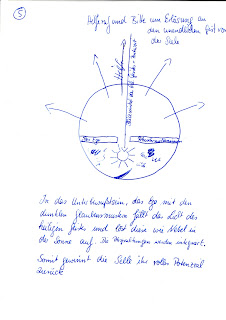 5
Hilferuf und Bitte um Erlösung an
den unendlichen Geist von
der Seele
Hilfe
Das Ego
In das Unterbewußtsein, das Ego mit den
dunklen Glaubensmustern fällt das Licht des
heiligen Geistes und löst diese wie Nebel in
der Sonne auf. Die Abspaltungen werden integriert.
Somit gewinnt die Seele ihr volles Potenzial
zurück